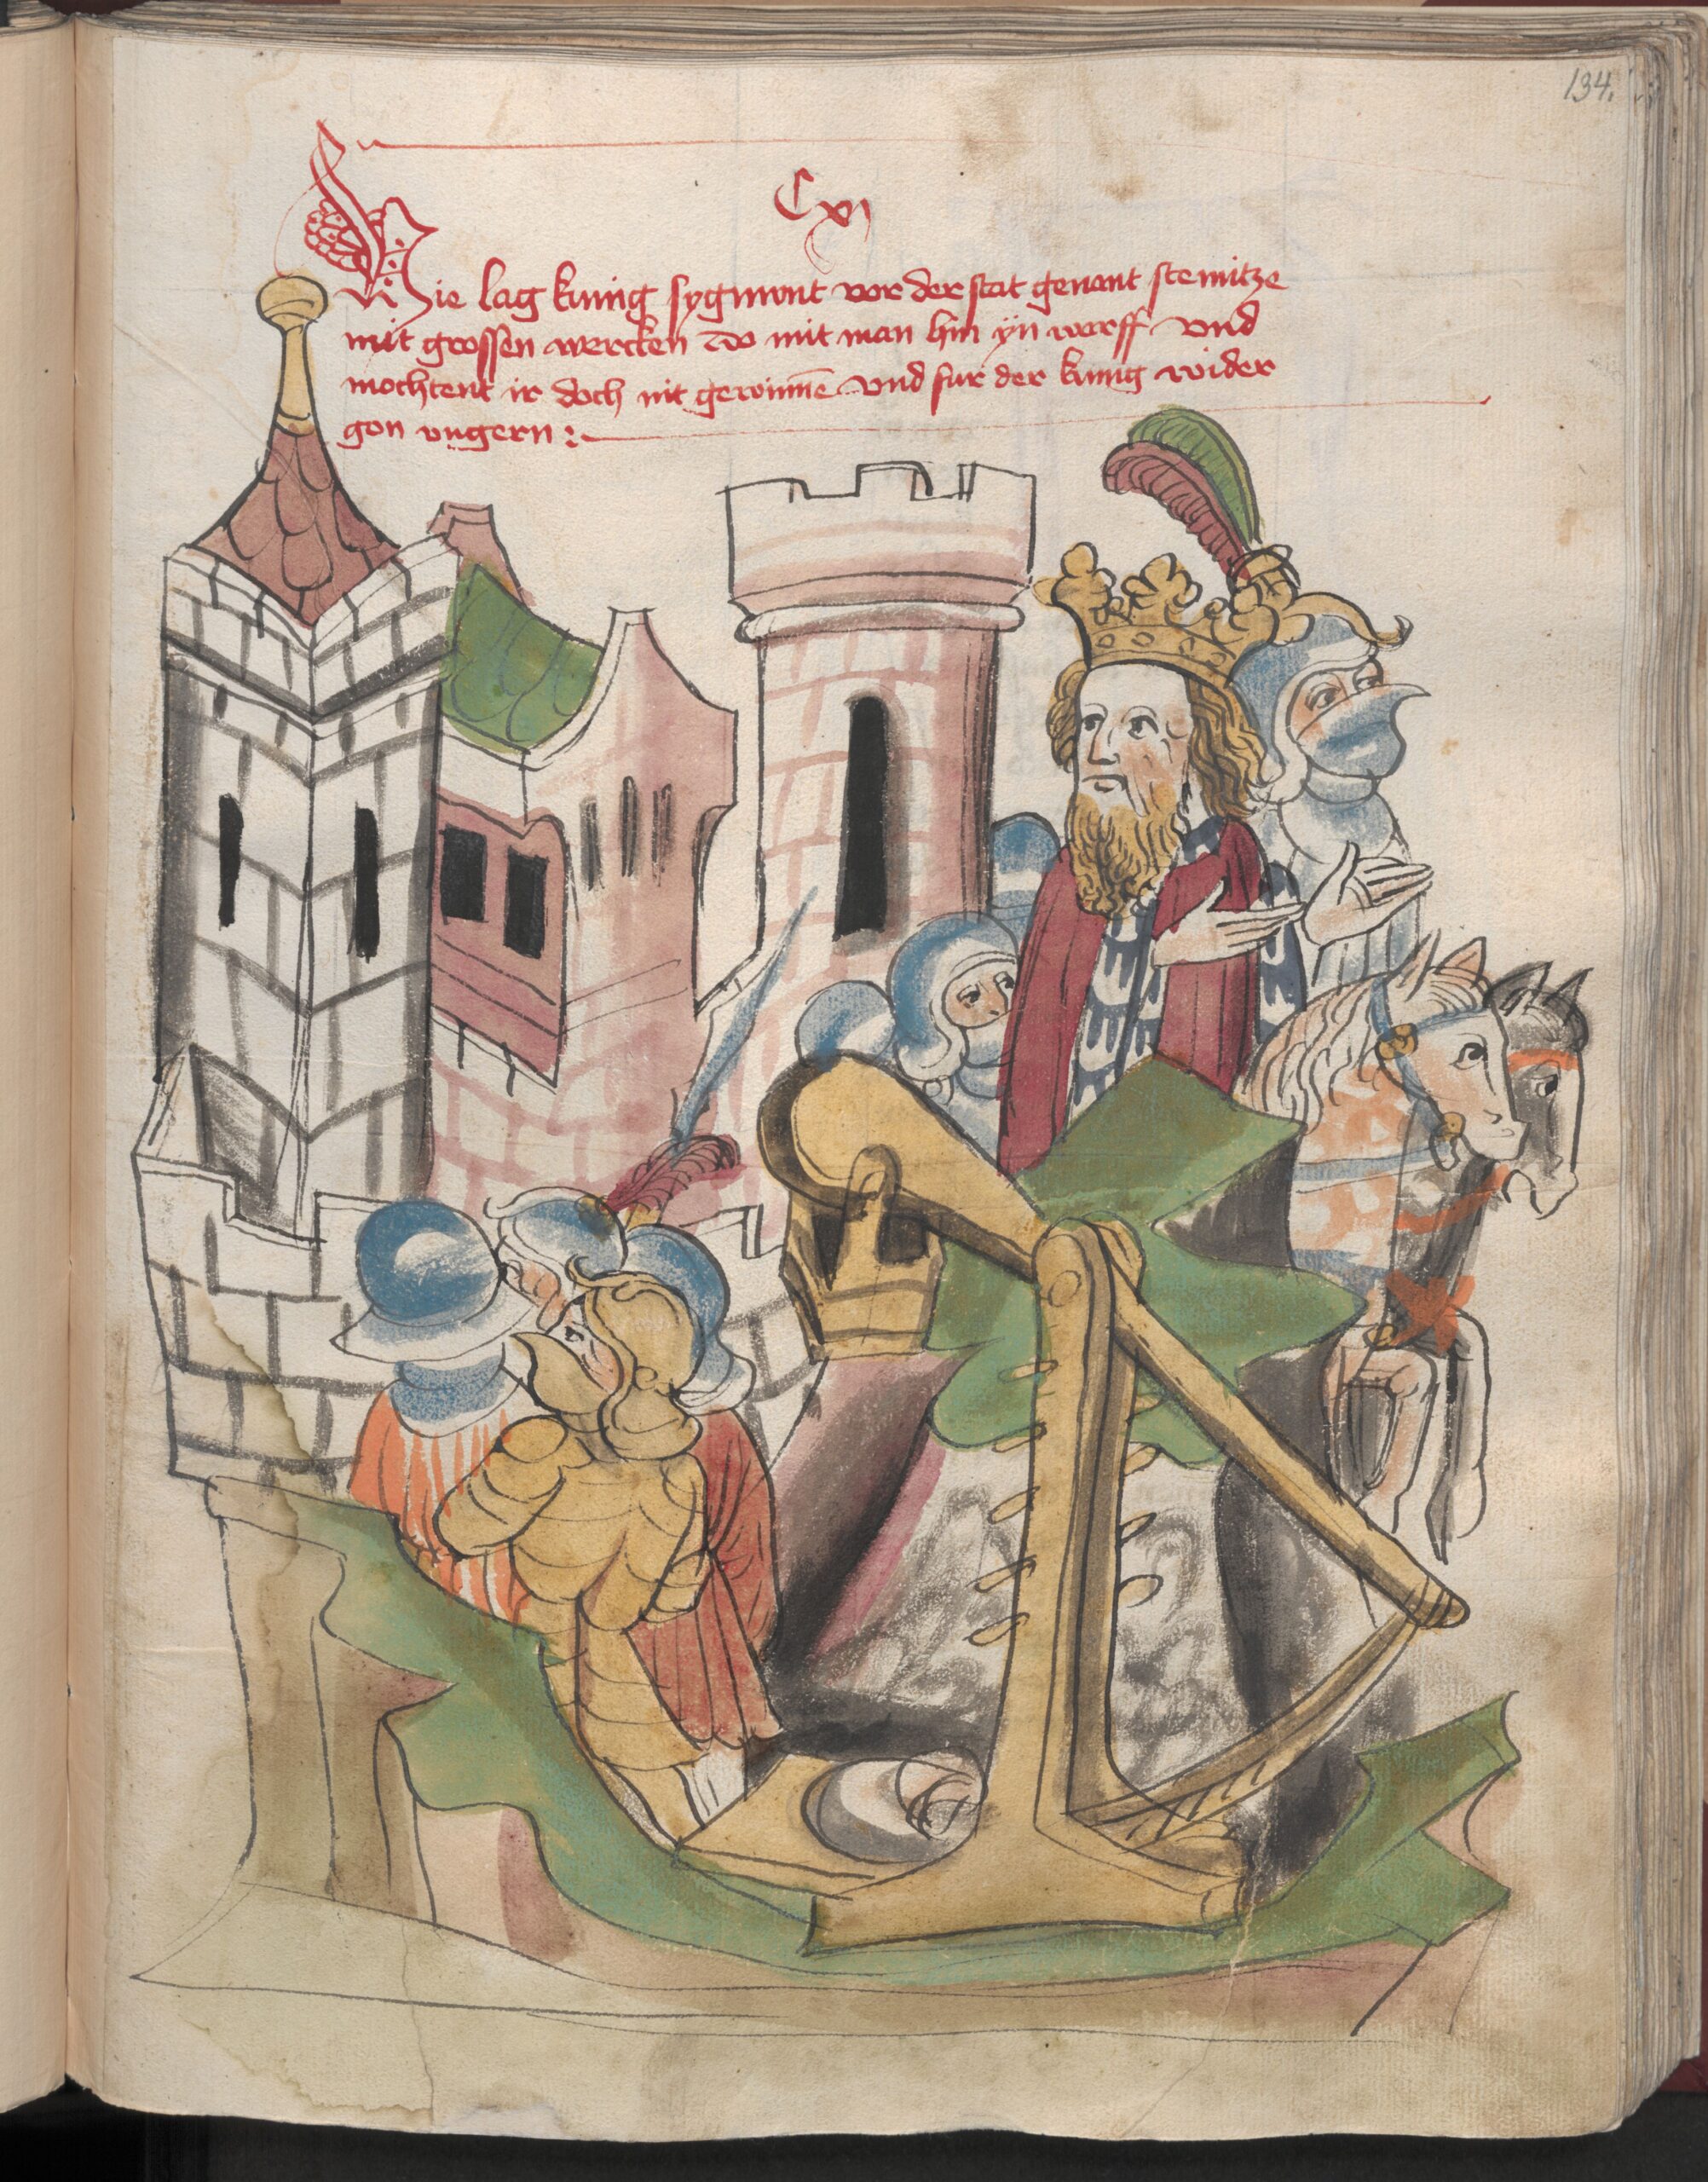 134.
Cxj
Hie lag kunig sygmont vor der stat genant stemitze
mit grossen wercken do mit man hin yn werff vnd
mochtent ir doch nit gewinnē vnd fur der kunig wider
gon vngern :